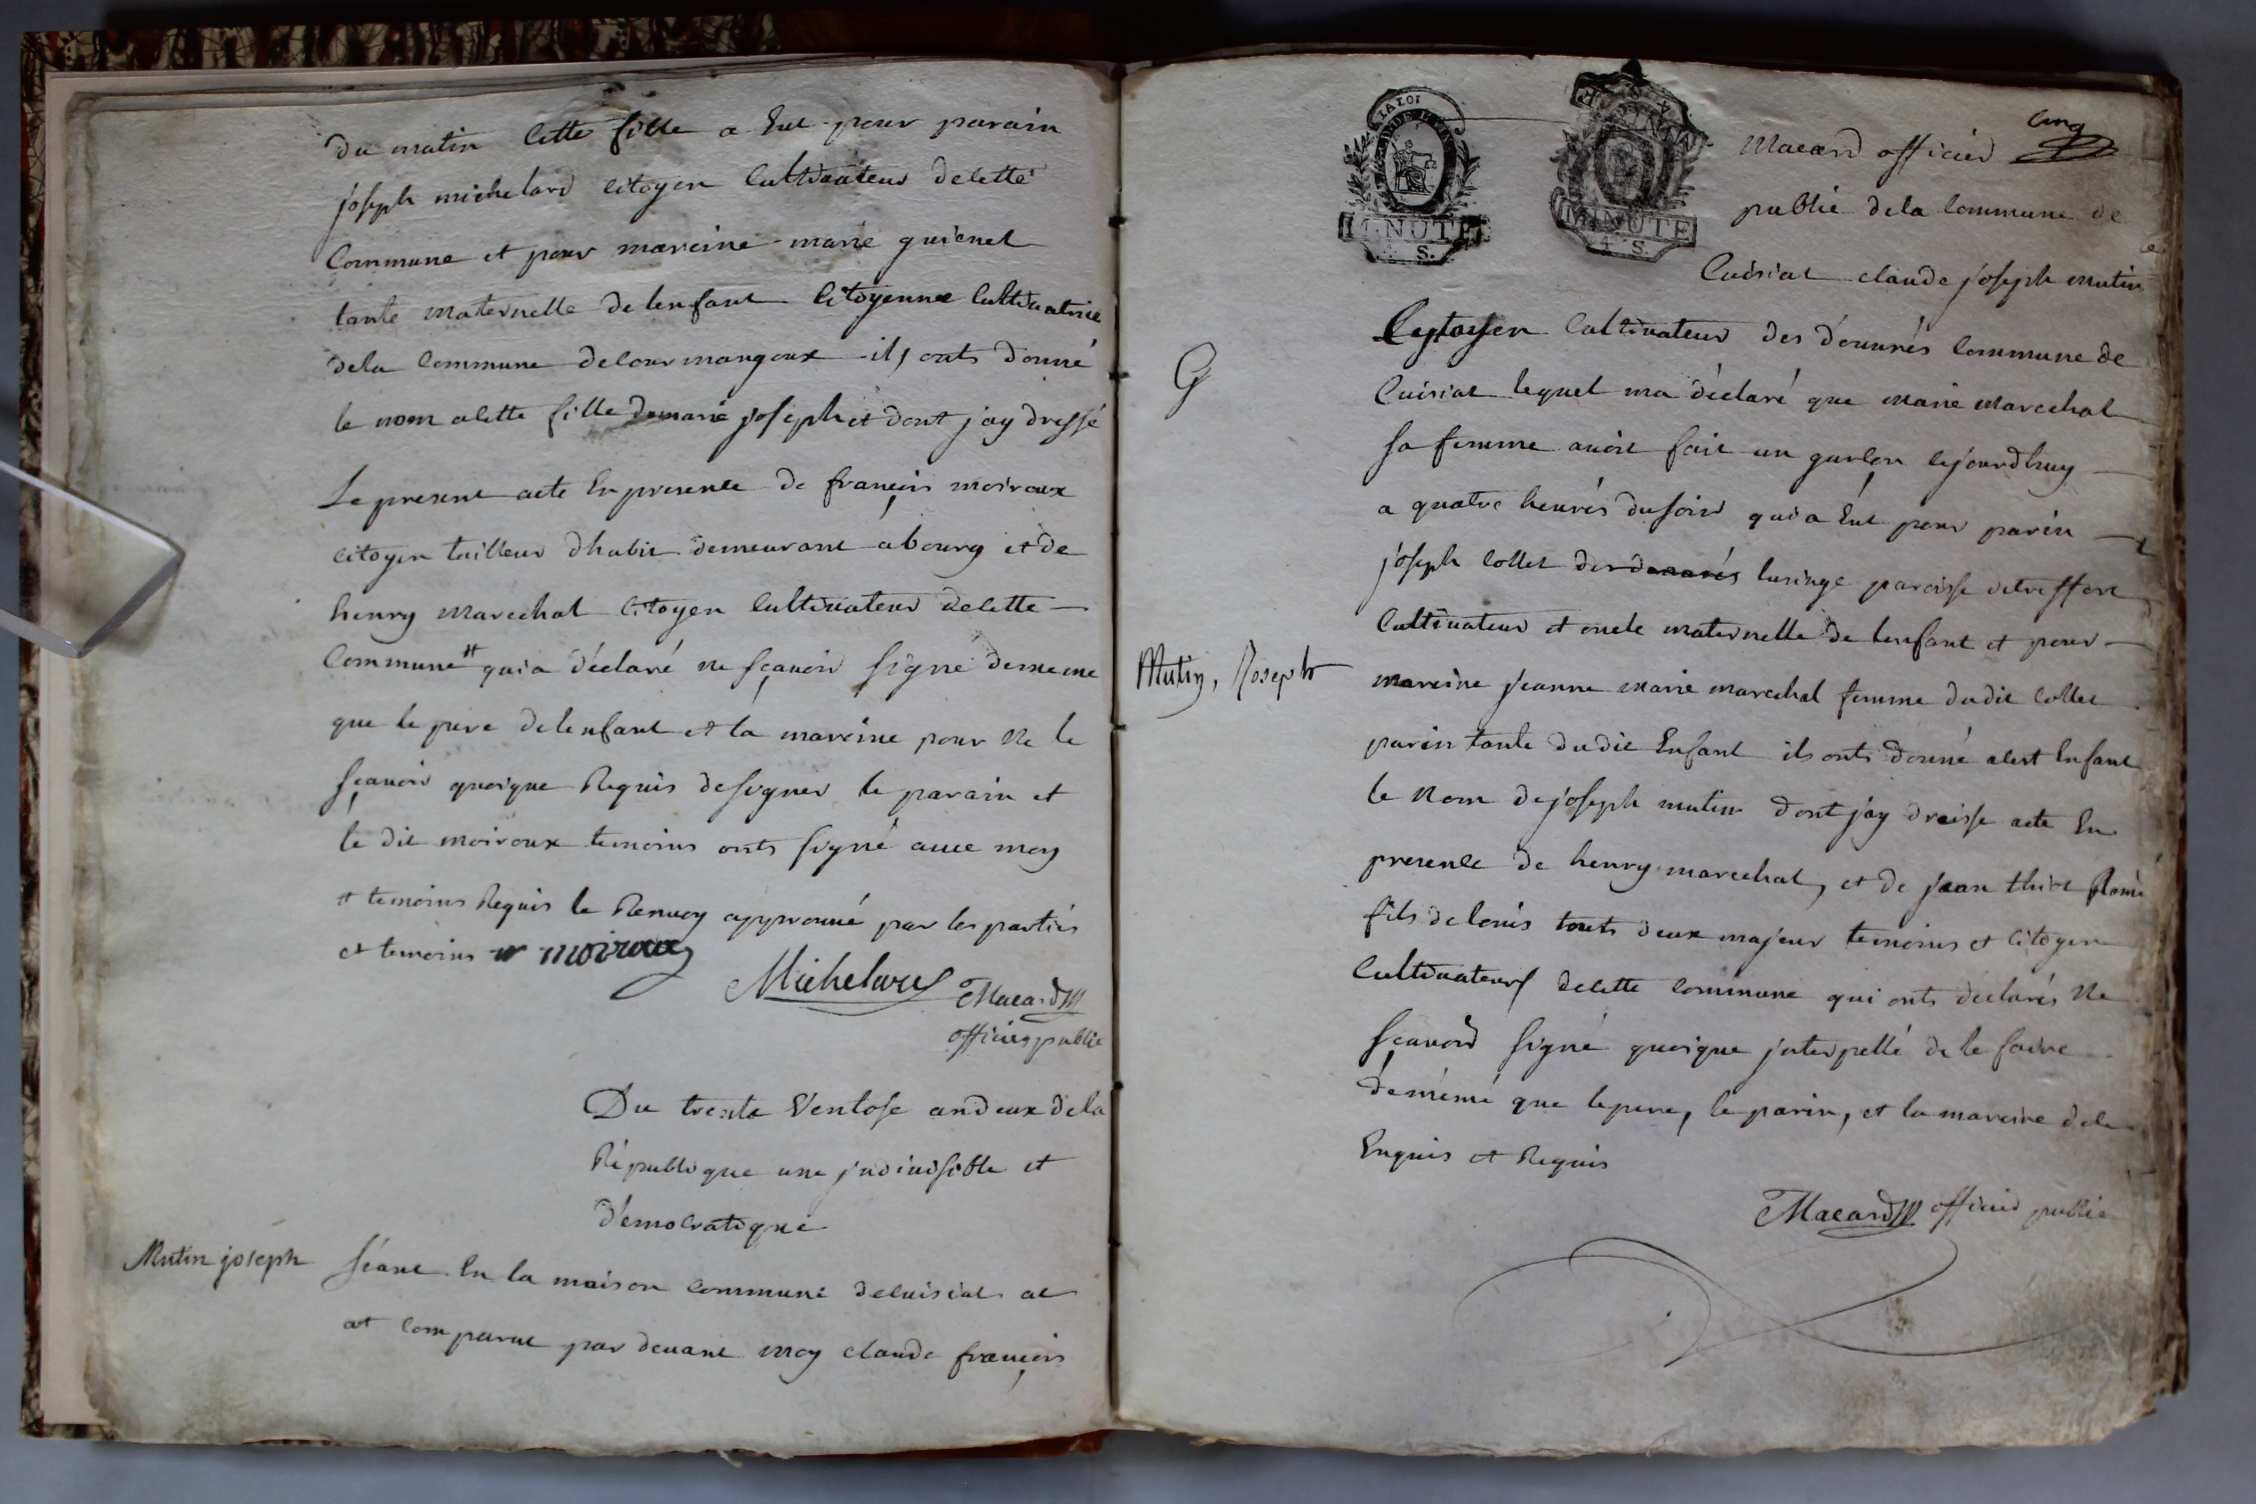 du matin cette fille a Eut pour parain
joseph michelard citoyen Cultivateur decette
Commune et pour mareine marie guienet
tante maternelle de lenfant Citoyenne Cultivatrice
dela Commune decourmangoux ils onts donné
le nom acette fille demarie joseph et dont jay dressé
Le present acte En presence de françois moiroux
citoyen tailleur dhabit demeurant abourg et de
henry marechal Citoyen Cultivateur decette
Commune qui a déclaré ne sçavoir signe dememe
que le pere delenfant et la mareine pour ne le
sçavoir quoique Requis designer le parain et
le dit moiroux temoins onts signé avec moy
temoins Requis le Renvoy approuvé par les partiés
et temoins moiroux
Michelard Macard
officier public
Du trente Ventose andeux dela
République une jndivisible et
démocratique
Mutin joseph
séant En la maison commune decuisiat at
at comparut par devant moy claude françois
LA LOI
MINUTE
4. S.
MINUTE
4. S.
cinq
Macard officier
public dela Commune de
Cuisiat claude joseph mutin
Citoyen Cultivateur des Commune de
Cuisiat lequel ma déclaré que marie marechal
sa femme avoit fait un garçon cejourdhuy
a quatre heurés dusoir qui a Eut pour parin
G
joseph collet des lusinge paroisse detreffort
Cultivateur et oncle maternelle de lenfant et pour
Mutin, Joseph
mareine jeanne marie marechal femme dudit collet
parin tante dudit Enfant ils onts donné acest Enfant
le nom dejoseph mutin dont jay dreisse acte En
presence de henry marechal, et de jean
fils delouis touts deux majeur temoins et Citoyen
Cultivateurs decette commune qui onts déclarés ne
sçavoir signé quoique jnterpellé de le faire
dememe que lepere, le parin, et la mareine dele
Enquis et Requis
Macard officier public